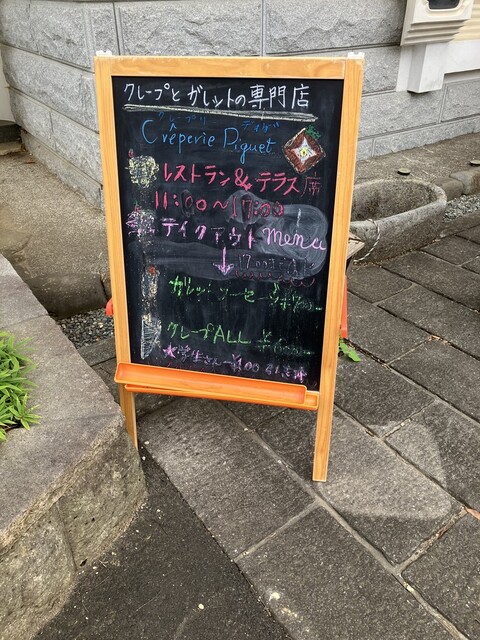 クレープと ガレットの専門店
クレープリー ディゲ
Crêperie Diguet
レストラン&テラス席
11:00~17:00
テイクアウト menu
↓
17:00まで
ガレットソーセージ
クレープALL
★学生さん ¥100 引き★